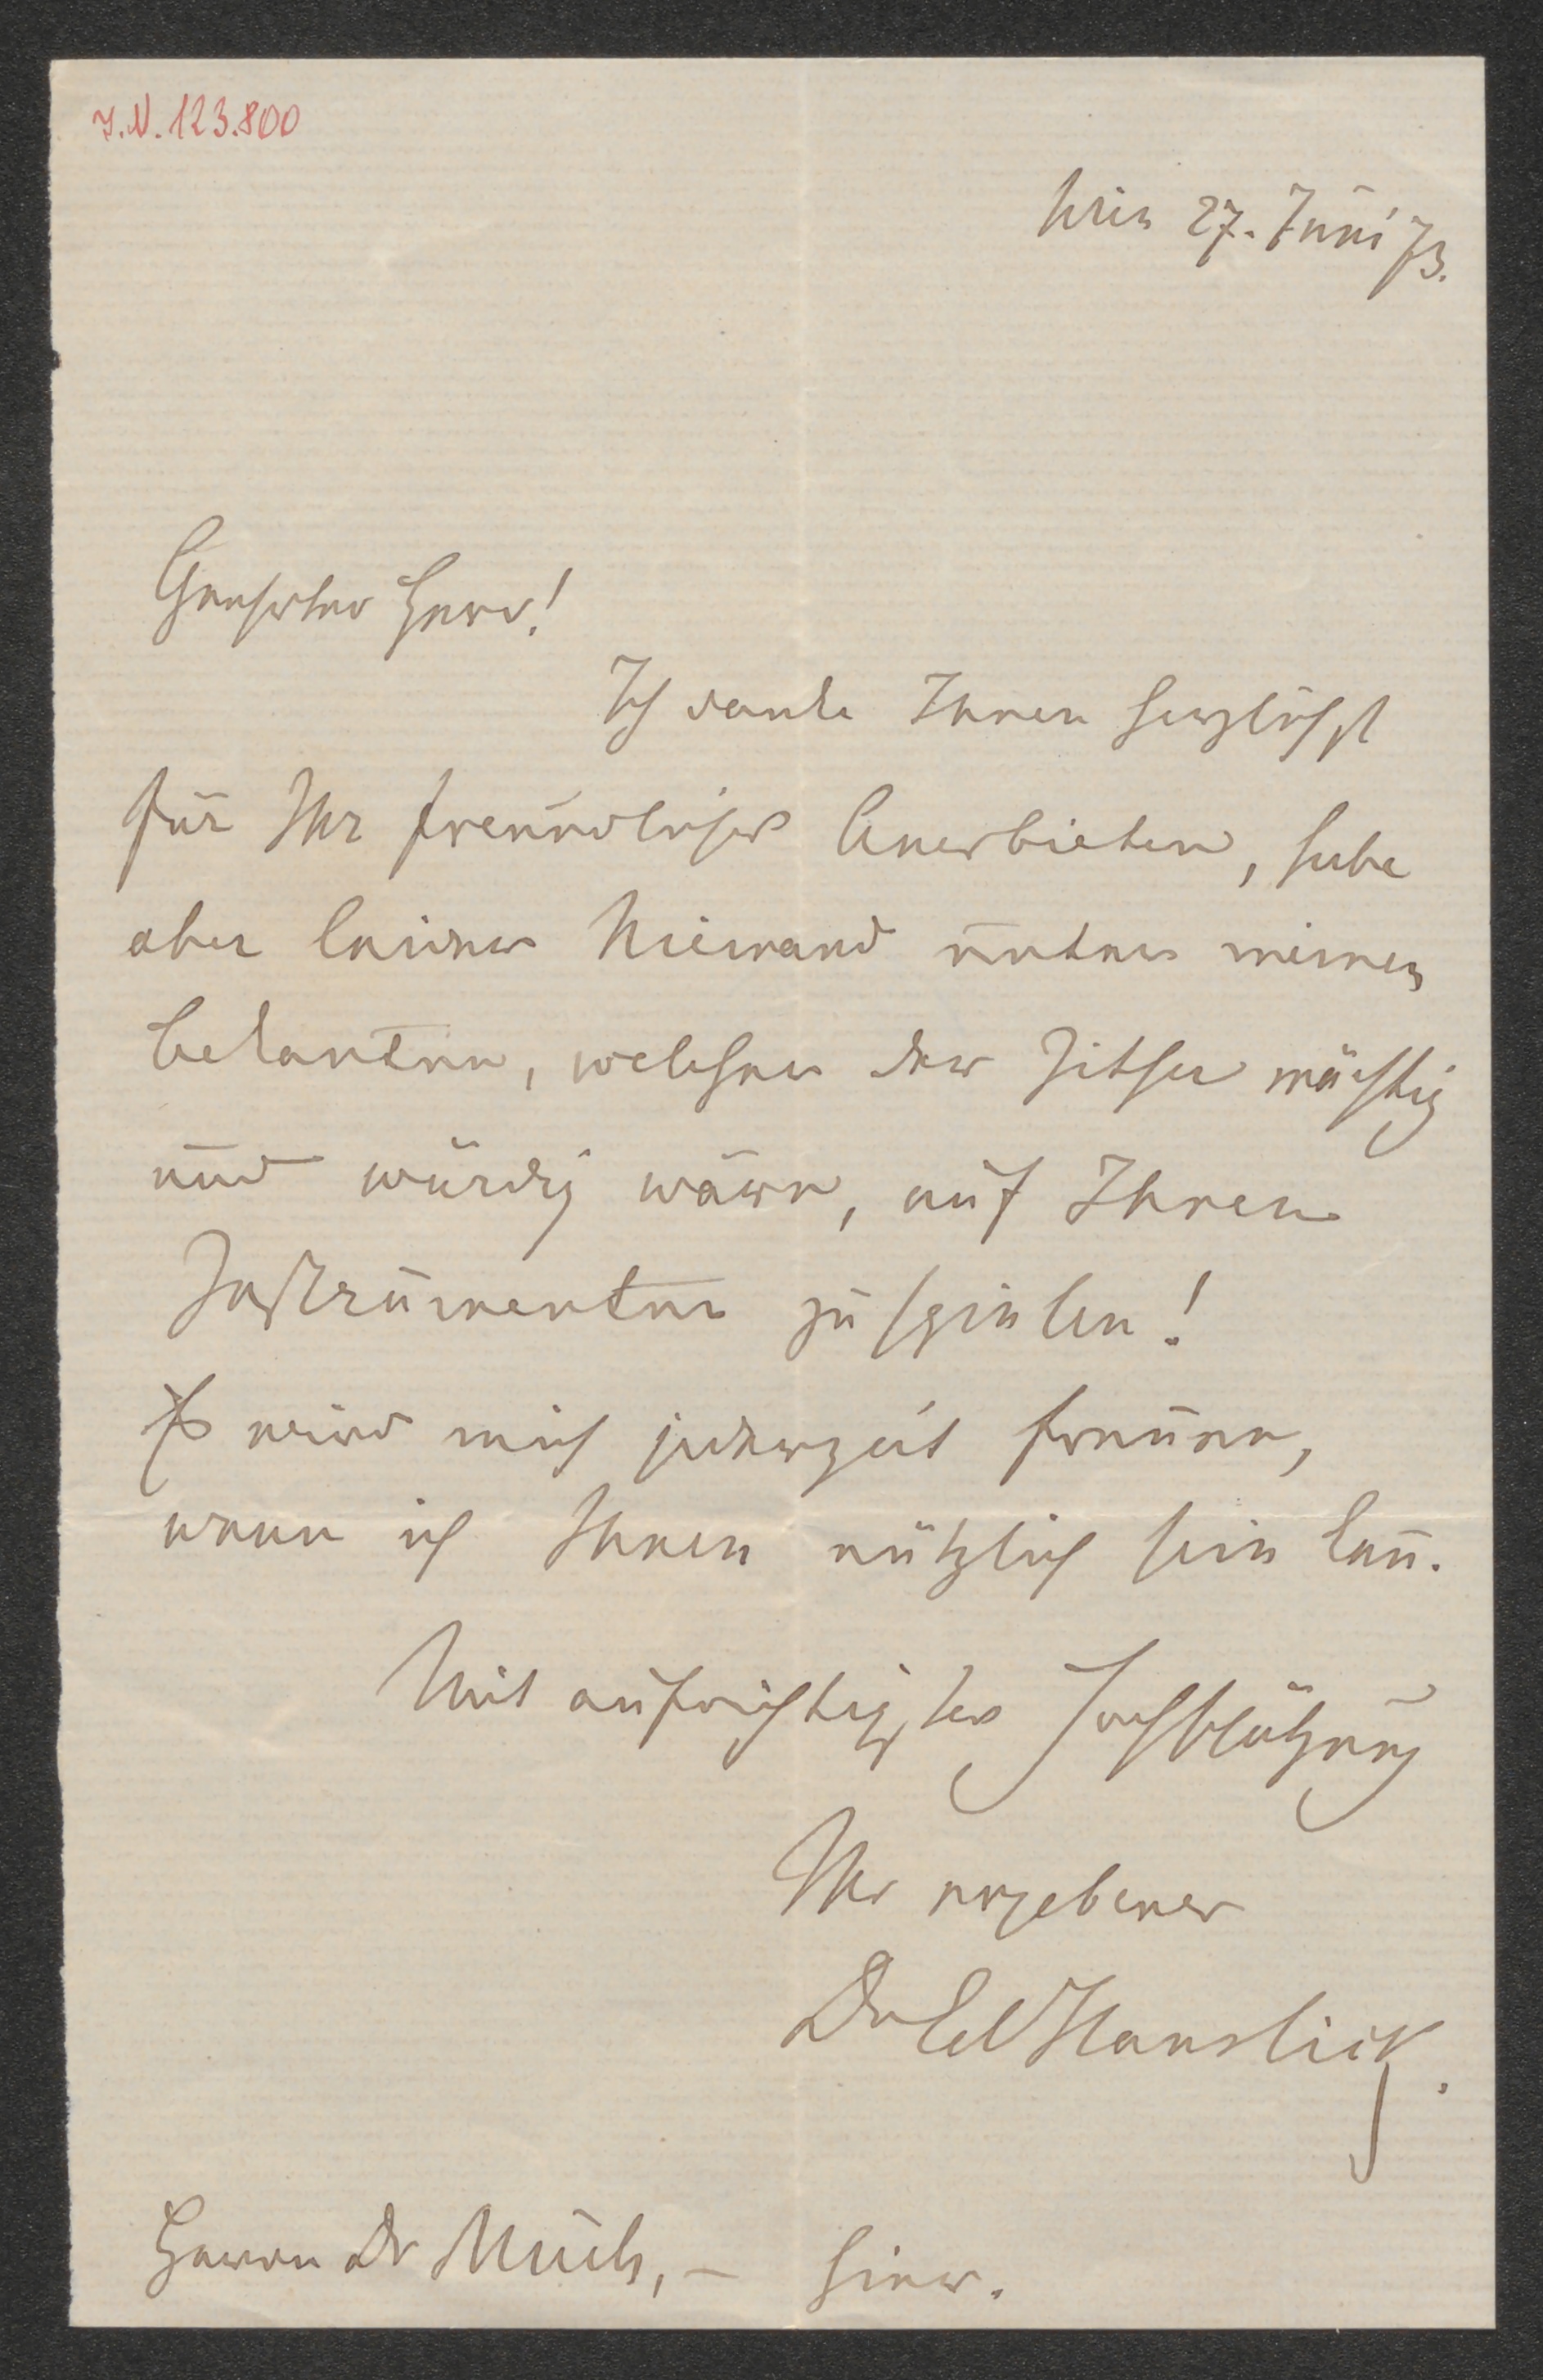 I.N. 123.800
Wien 27. Juni 73.
Geehrter Herr!
Ich danke Ihnen herzlichst
für Ihr freundliches Anerbieten, habe
aber leider Niemand unter meinen
Bekanten, welcher der Zither mächtig
und würdig wäre, auf Ihren
Instrumenten zu spielen!
Es wird mich jederzeit freuen,
wenn ich Ihnen nützlich sein kañ.
Mit aufrichtigster Hochschätzung
Ihr ergebener
Dr Ed Hanslick.
Herrn Dr Much, – hier.